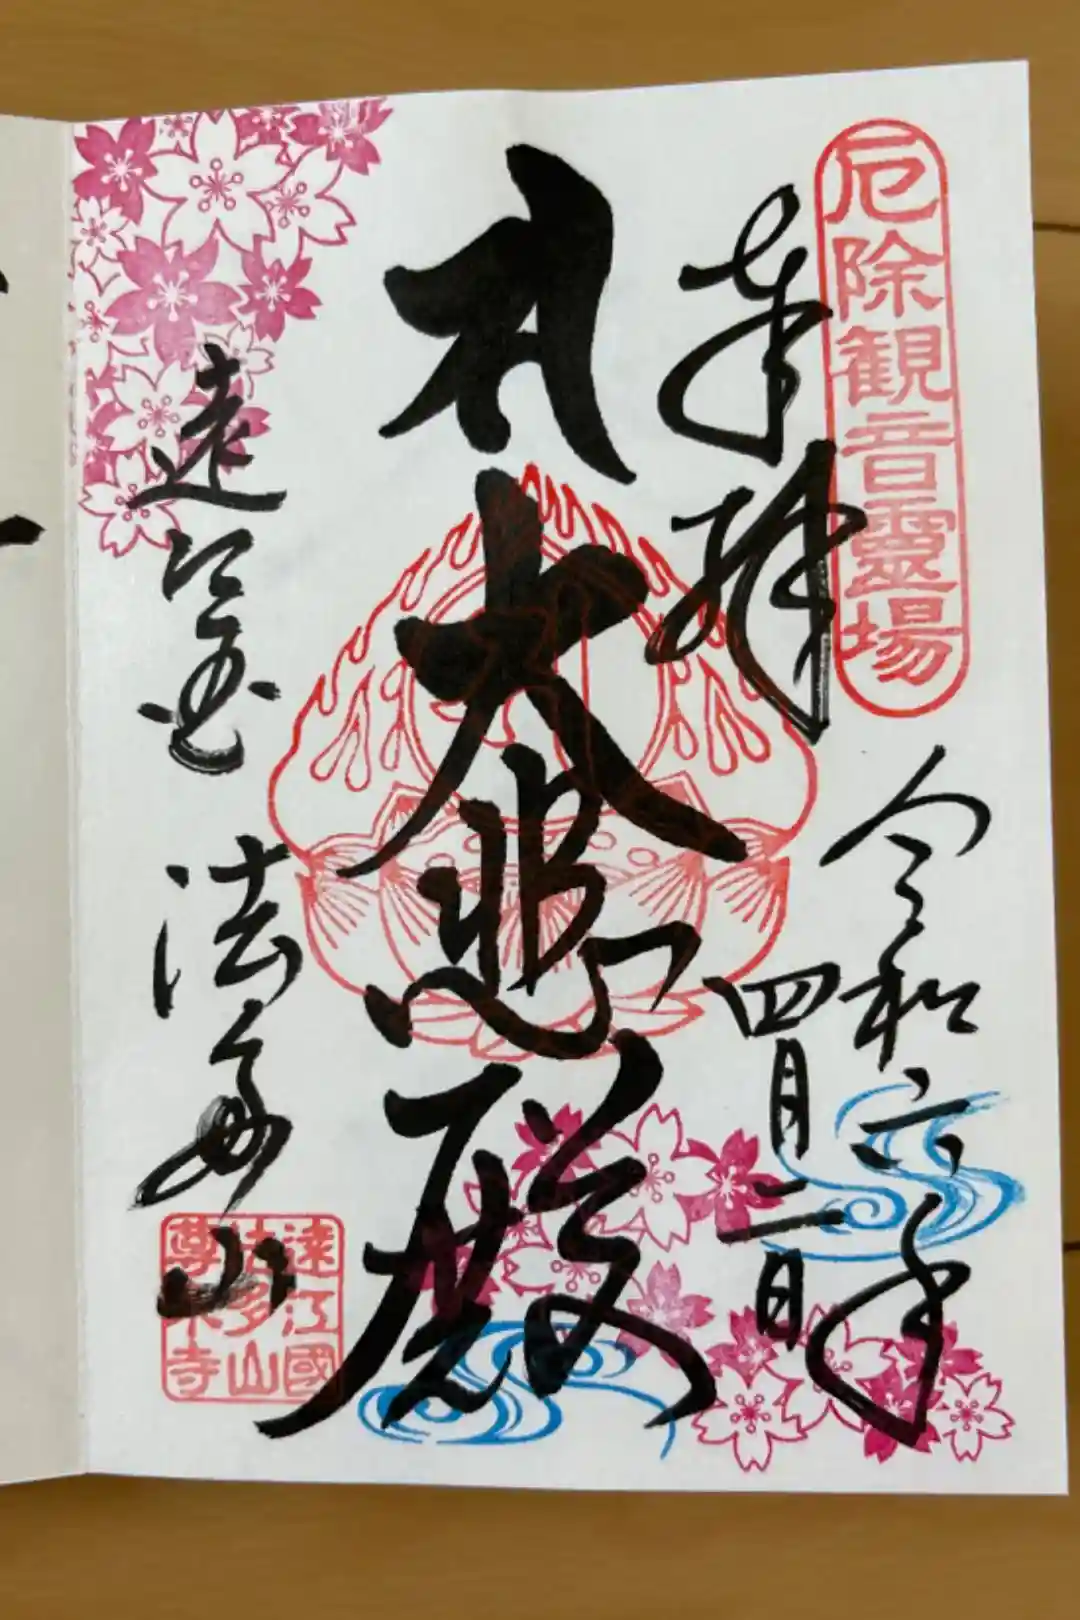 厄除観音靈場
奉拝
令和六年
四月二日
大悲殿
遠江国 法多山
遠江國
法多山
尊永寺